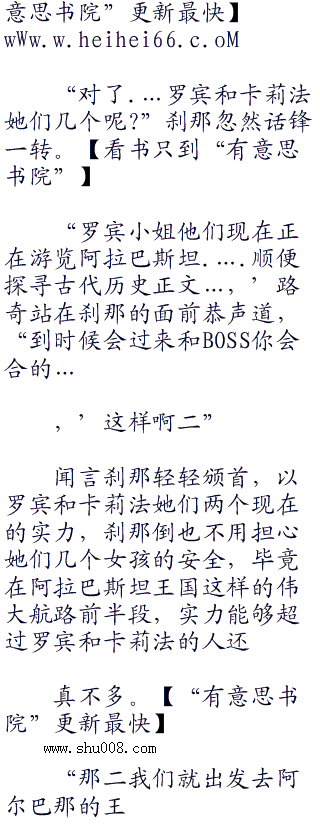 意思书院”更新最快】
wWw.w.heihei66.c.oM
“对了....罗宾和卡莉法
她们几个呢?”刹那忽然话锋
一转。【看书只到“有意思
书院”】
“罗宾小姐他们现在正
在游览阿拉巴斯坦.....顺便
探寻古代历史正文...,’路
奇站在刹那的面前恭声道,
“到时候会过来和BOSS你会
合的...
,’这样啊二”
闻言刹那轻轻颁首，以
罗宾和卡莉法她们两个现在
的实力，刹那倒也不用担心
她们几个女孩的安全，毕竟
在阿拉巴斯坦王国这样的伟
大航路前半段，实力能够超
过罗宾和卡莉法的人还
真不多。【“有意思书
院”更新最快】
www.shu008.com
“那二我们就出发去阿
尔巴那的王